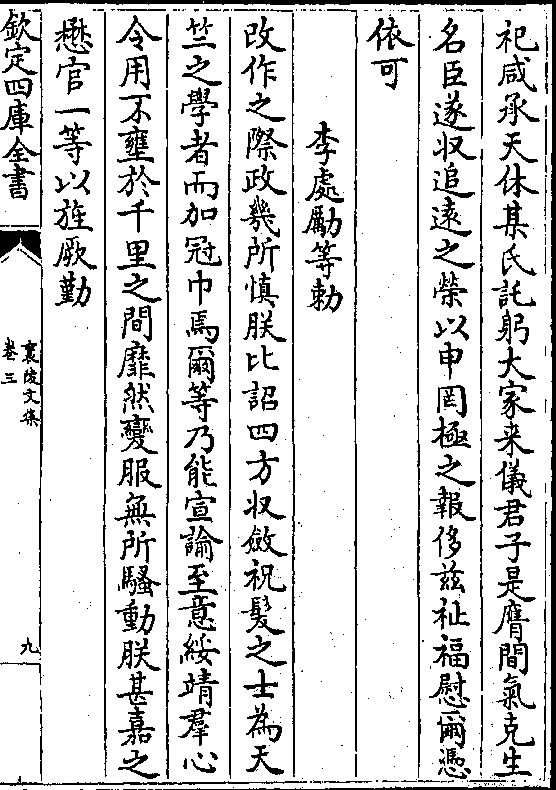 祀咸承天休某氏託躬大家来儀君子是膺間氣克生
名臣遂収追遠之榮以申罔極之報侈兹祉福慰爾憑
依可
李處勵等勅
改作之際政幾所慎朕比詔四方収斂祝髪之士為天
竺之學者而加冠巾焉爾等乃能宣諭至意綏靖羣心
令用不壅於千里之間靡然變服無所騷動朕甚嘉之
懋官一等以旌厥勤
欽定四庫全書
襄陵文集
卷三
九